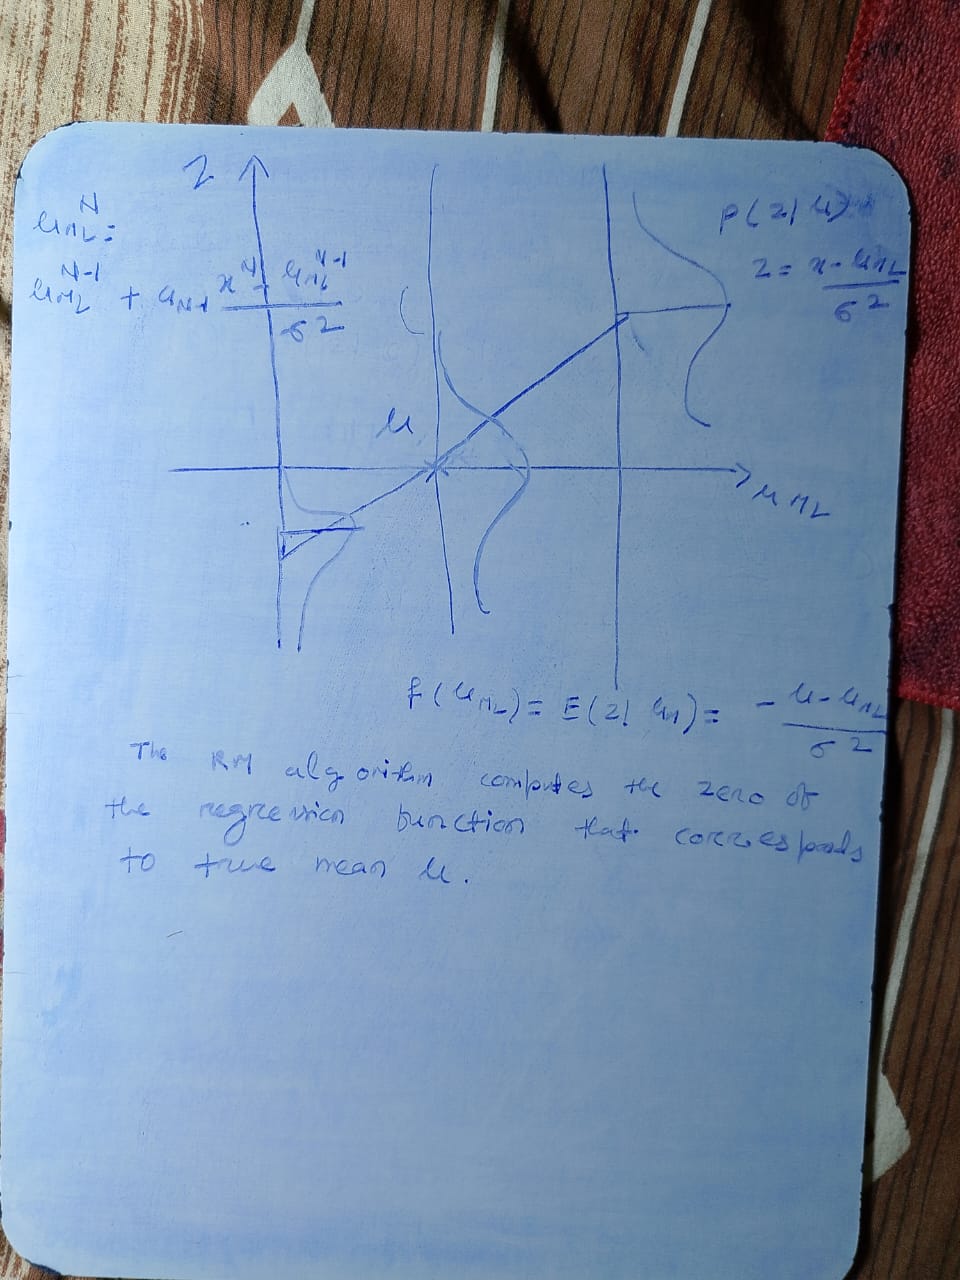 Z
μ_ML^N =
μ_ML^N-1 + a_N-1 x^N - μ_ML^N-1 / σ^2
P(Z|μ)
Z = x - μ_ML / σ^2
μ
μ_ML
f(μ_ML) = E(Z|μ_M) = - μ - μ_ML / σ^2
The RM algorithm computes the zero of
the regression function that corresponds
to true mean μ.